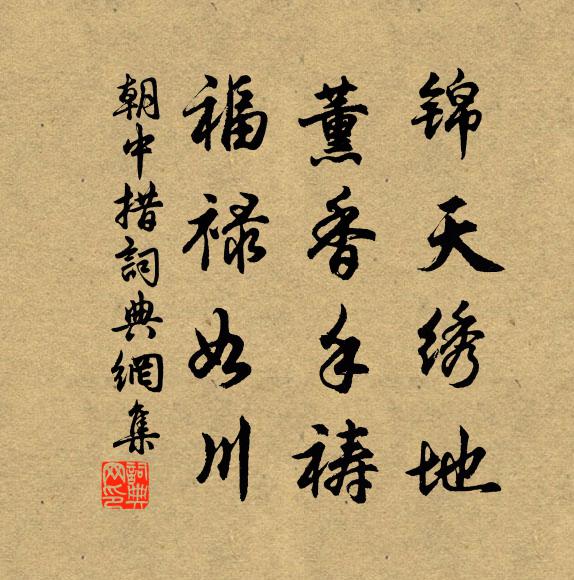 锦天绣地
薰香手祷
福禄如川
朝中措詞典網集
詞典网印